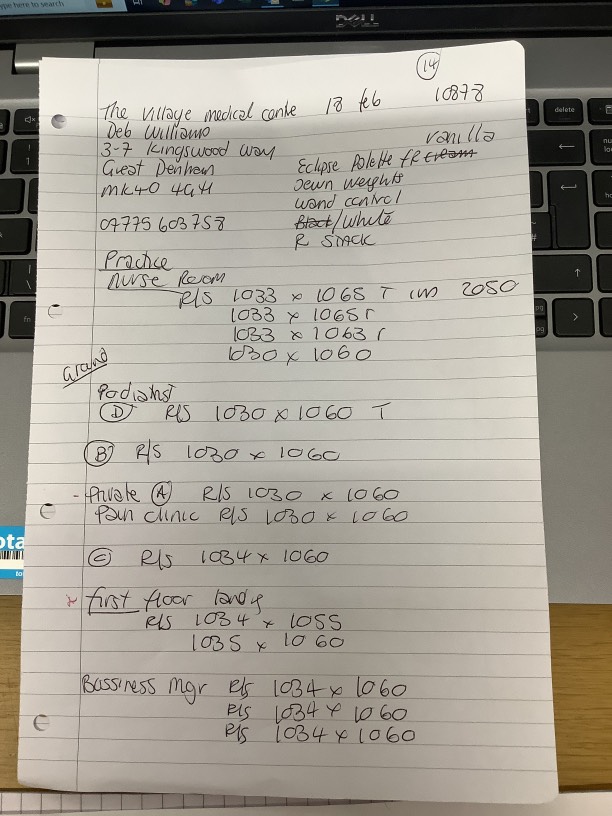 ype here to search
DELL
delete
14
The Village medical centre 18 feb 10878
Deb Williams
3-7 Kingswood Way
Great Denham
MK40 4GH
07775 603758
vanilla
Eclipse Palette FR cream
Sewn weights
wand control
Black/white
R STACK
Practice
Nurse Room
R/S 1033 x 1065 T in 2050
1033 x 1065 r
1033 x 1063 r
1030 x 1060
Grand
Podiatrist
D R/S 1030 x 1060 T
B R/S 1030 x 1060
- Private A R/S 1030 x 1060
Pain clinic R/S 1030 x 1060
C R/S 1034 x 1060
x first floor landg
R/S 1034 x 1055
1035 x 1060
Bassiness Mgr R/S 1034 x 1060
R/S 1034 x 1060
R/S 1034 x 1060